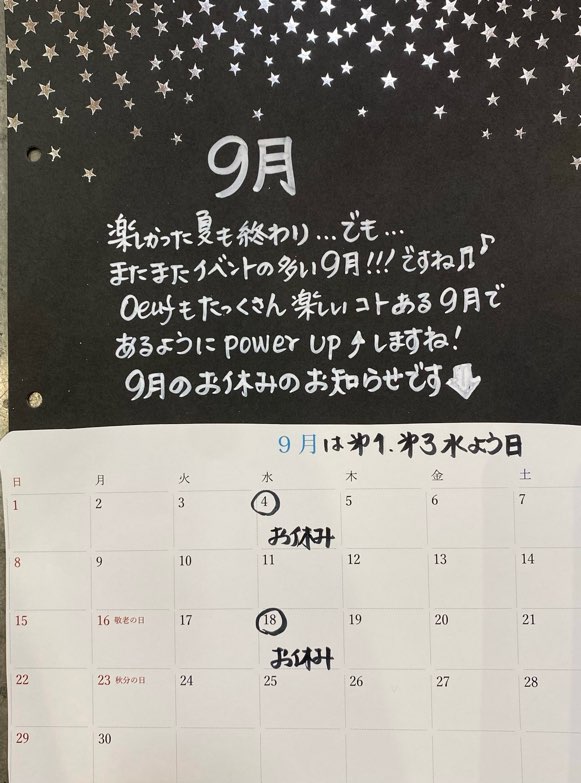 9月
楽しかった夏も終わり…でも…
またまたイベントの多い9月!!!ですね♫♪
Oeufもたっくさん楽しいコトある9月で
あるようにpower up↑しますね!
9月のお休みのお知らせです⇩
9月は第1.第3水よう日
日 月 火 水 木 金 土
1 2 3 4 5 6 7
お休み
8 9 10 11 12 13 14
15 16 敬老の日 17 18 19 20 21
お休み
22 23 秋分の日 24 25 26 27 28
29 30